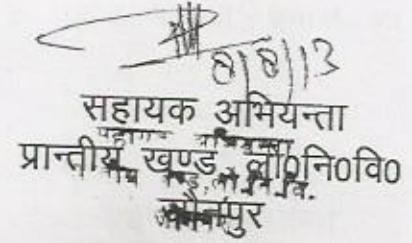 8/8/13
सहायक अभियन्ता
प्रान्तीय खण्ड, लो0नि0वि0
जौनपुर